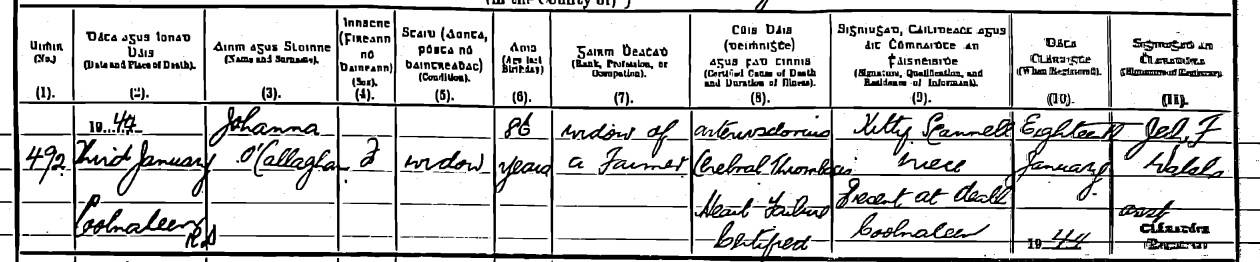 (in the County of)
Uimhir
(No.).
(1).
Dáta agus Ionad
Báis
(Date and Place of Death).
(2).
Ainm agus Sloinne
(Name and Surname).
(3).
Inscne
(Fireann
nó
Baineann)
(Sex).
(4).
Staid (Aonta,
pósta nó
baintreabhach)
(Condition).
(5).
Aois
(Age last
Birthday)
(6).
Gairm Beatha
(Rank, Profession, or
Occupation).
(7).
Cúis Báis
(deimhnithe)
agus fad tinnis
(Certified Cause of Death
and Duration of Illness).
(8).
Sighniughadh, Cáilidheacht agus
áit Comhnaidhthe an
Faisnéiseora
(Signature, Qualification, and
Residence of Informant).
(9).
Dáta
Cláruighthe
(When Registered).
(10).
Sighniughadh an
Cláruightheora
(Signature of Registrar).
(11).
492
1944
Third January
Coolnaleen
R.D
Johanna
O'Callaghan
F
widow
86
years
widow of
a Farmer
arteriosclerosis
Cerebral Thrombosis
Heart Failure
Certified
Kitty Scannell
niece
Present at death
Coolnaleen
Eighteenth
January
1944
F
Walsh
asst
Cláruightheoir
(Registrar)